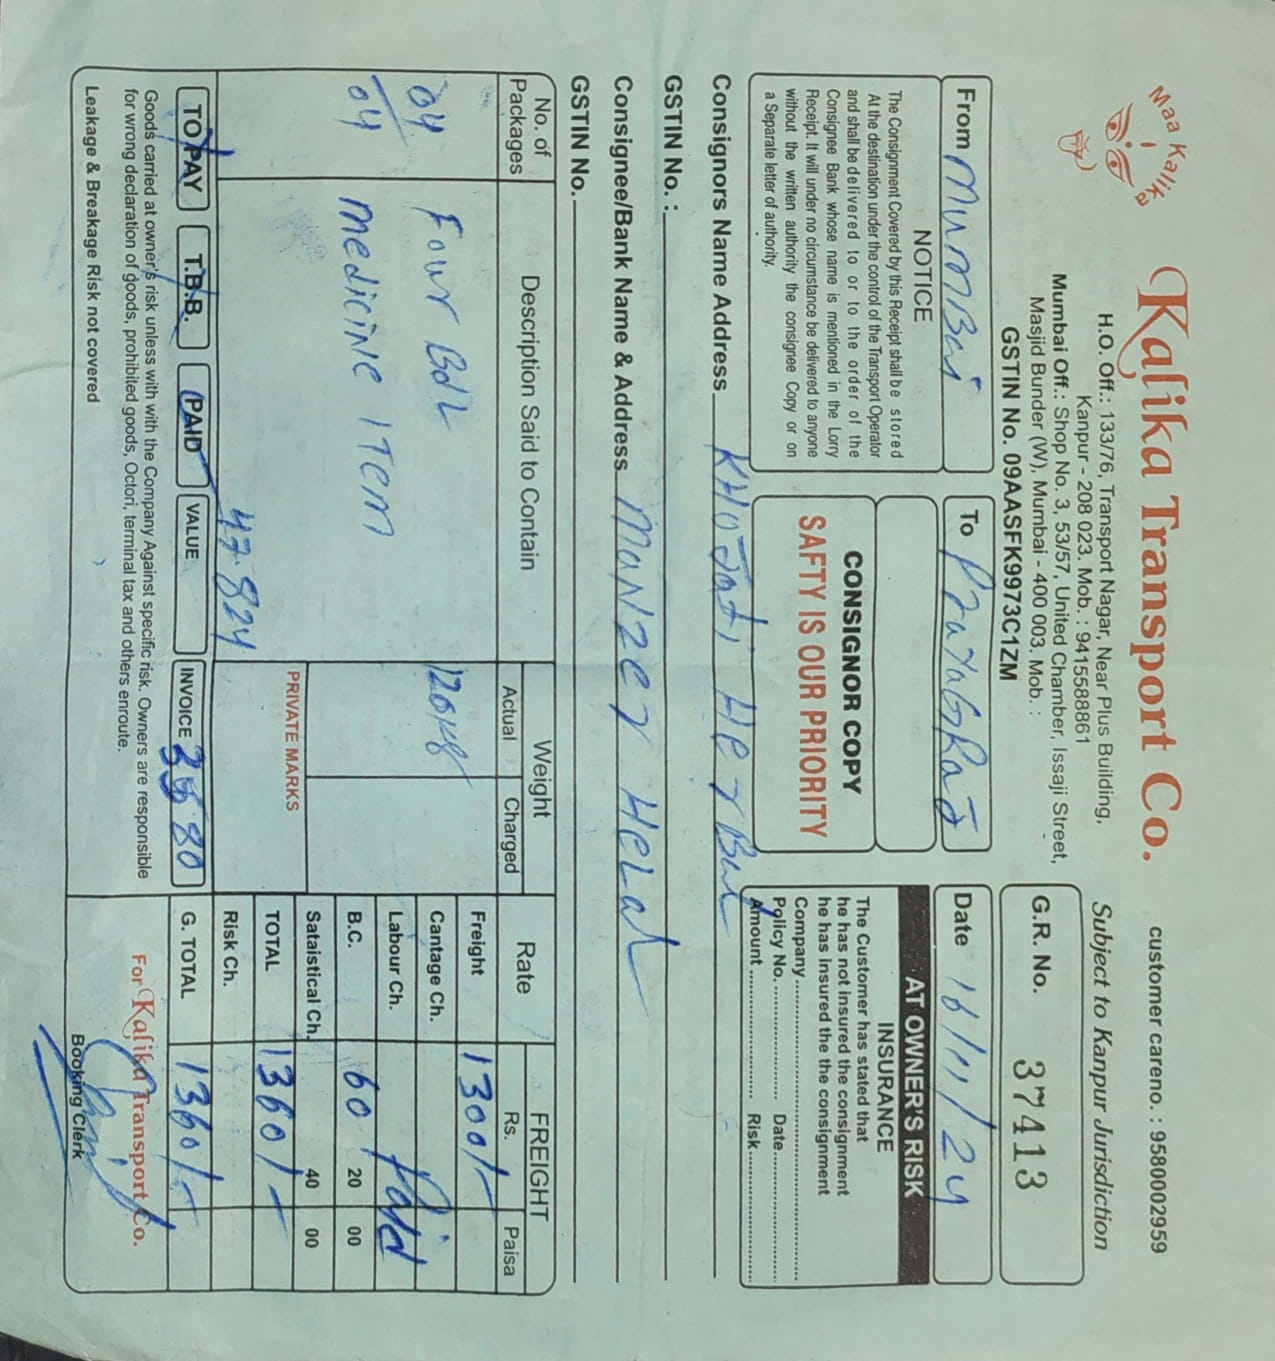 Maa Kalika
Kalika Transport Co.
customer careno. : 9580002959
H.O. Off.: 133/76, Transport Nagar, Near Plus Building,
Kanpur - 208 023. Mob. : 9415588861
Mumbai Off.: Shop No. 3, 53/57, United Chamber, Issaji Street,
Masjid Bunder (W), Mumbai - 400 003. Mob. :
GSTIN No. 09AASFK9973C1ZM
Subject to Kanpur Jurisdiction
G.R. No. 37413
From MumBai
To PrayaGRaJ
Date 16/11/24
NOTICE
The Consignment Covered by this Receipt shall be stored
At the destination under the control of the Transport Operator
and shall be delivered to or to the order of the
Consignee Bank whose name is mentioned in the Lorry
Receipt. It will under no circumstance be delivered to anyone
without the written authority the consignee Copy or on
a Separate letter of authority.
CONSIGNOR COPY
SAFTY IS OUR PRIORITY
AT OWNER'S RISK
INSURANCE
The Customer has stated that
he has not insured the consignment
he has insured the the consignment
Company
Policy No. Date
Amount Risk
Consignors Name Address KHoJati HerBal
GSTIN No. :
Consignee/Bank Name & Address MoNzer HeLal
GSTIN No.
No. of Packages
Description Said to Contain
Weight
Actual
Charged
Rate
FREIGHT
Rs.
Paisa
04
Four BdL
04
medicine ITem
120kg
47.824
PRIVATE MARKS
Freight 1300/-
Cantage Ch.
Labour Ch. Paid
B.C. 60 20 00
Sataistical Ch. 40 00
TOTAL 1360/-
Risk Ch.
G. TOTAL 1360/-
TO PAY
T.B.B.
PAID
VALUE
INVOICE
Goods carried at owner's risk unless with with the Company Against specific risk. Owners are responsible
for wrong declaration of goods, prohibited goods, Octori, terminal tax and others enroute.
Leakage & Breakage Risk not covered
For Kalika Transport Co.
Booking Clerk